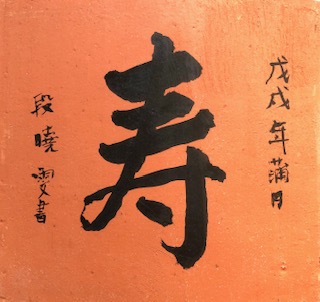 戊戌年蒲月
寿
段曉雯書